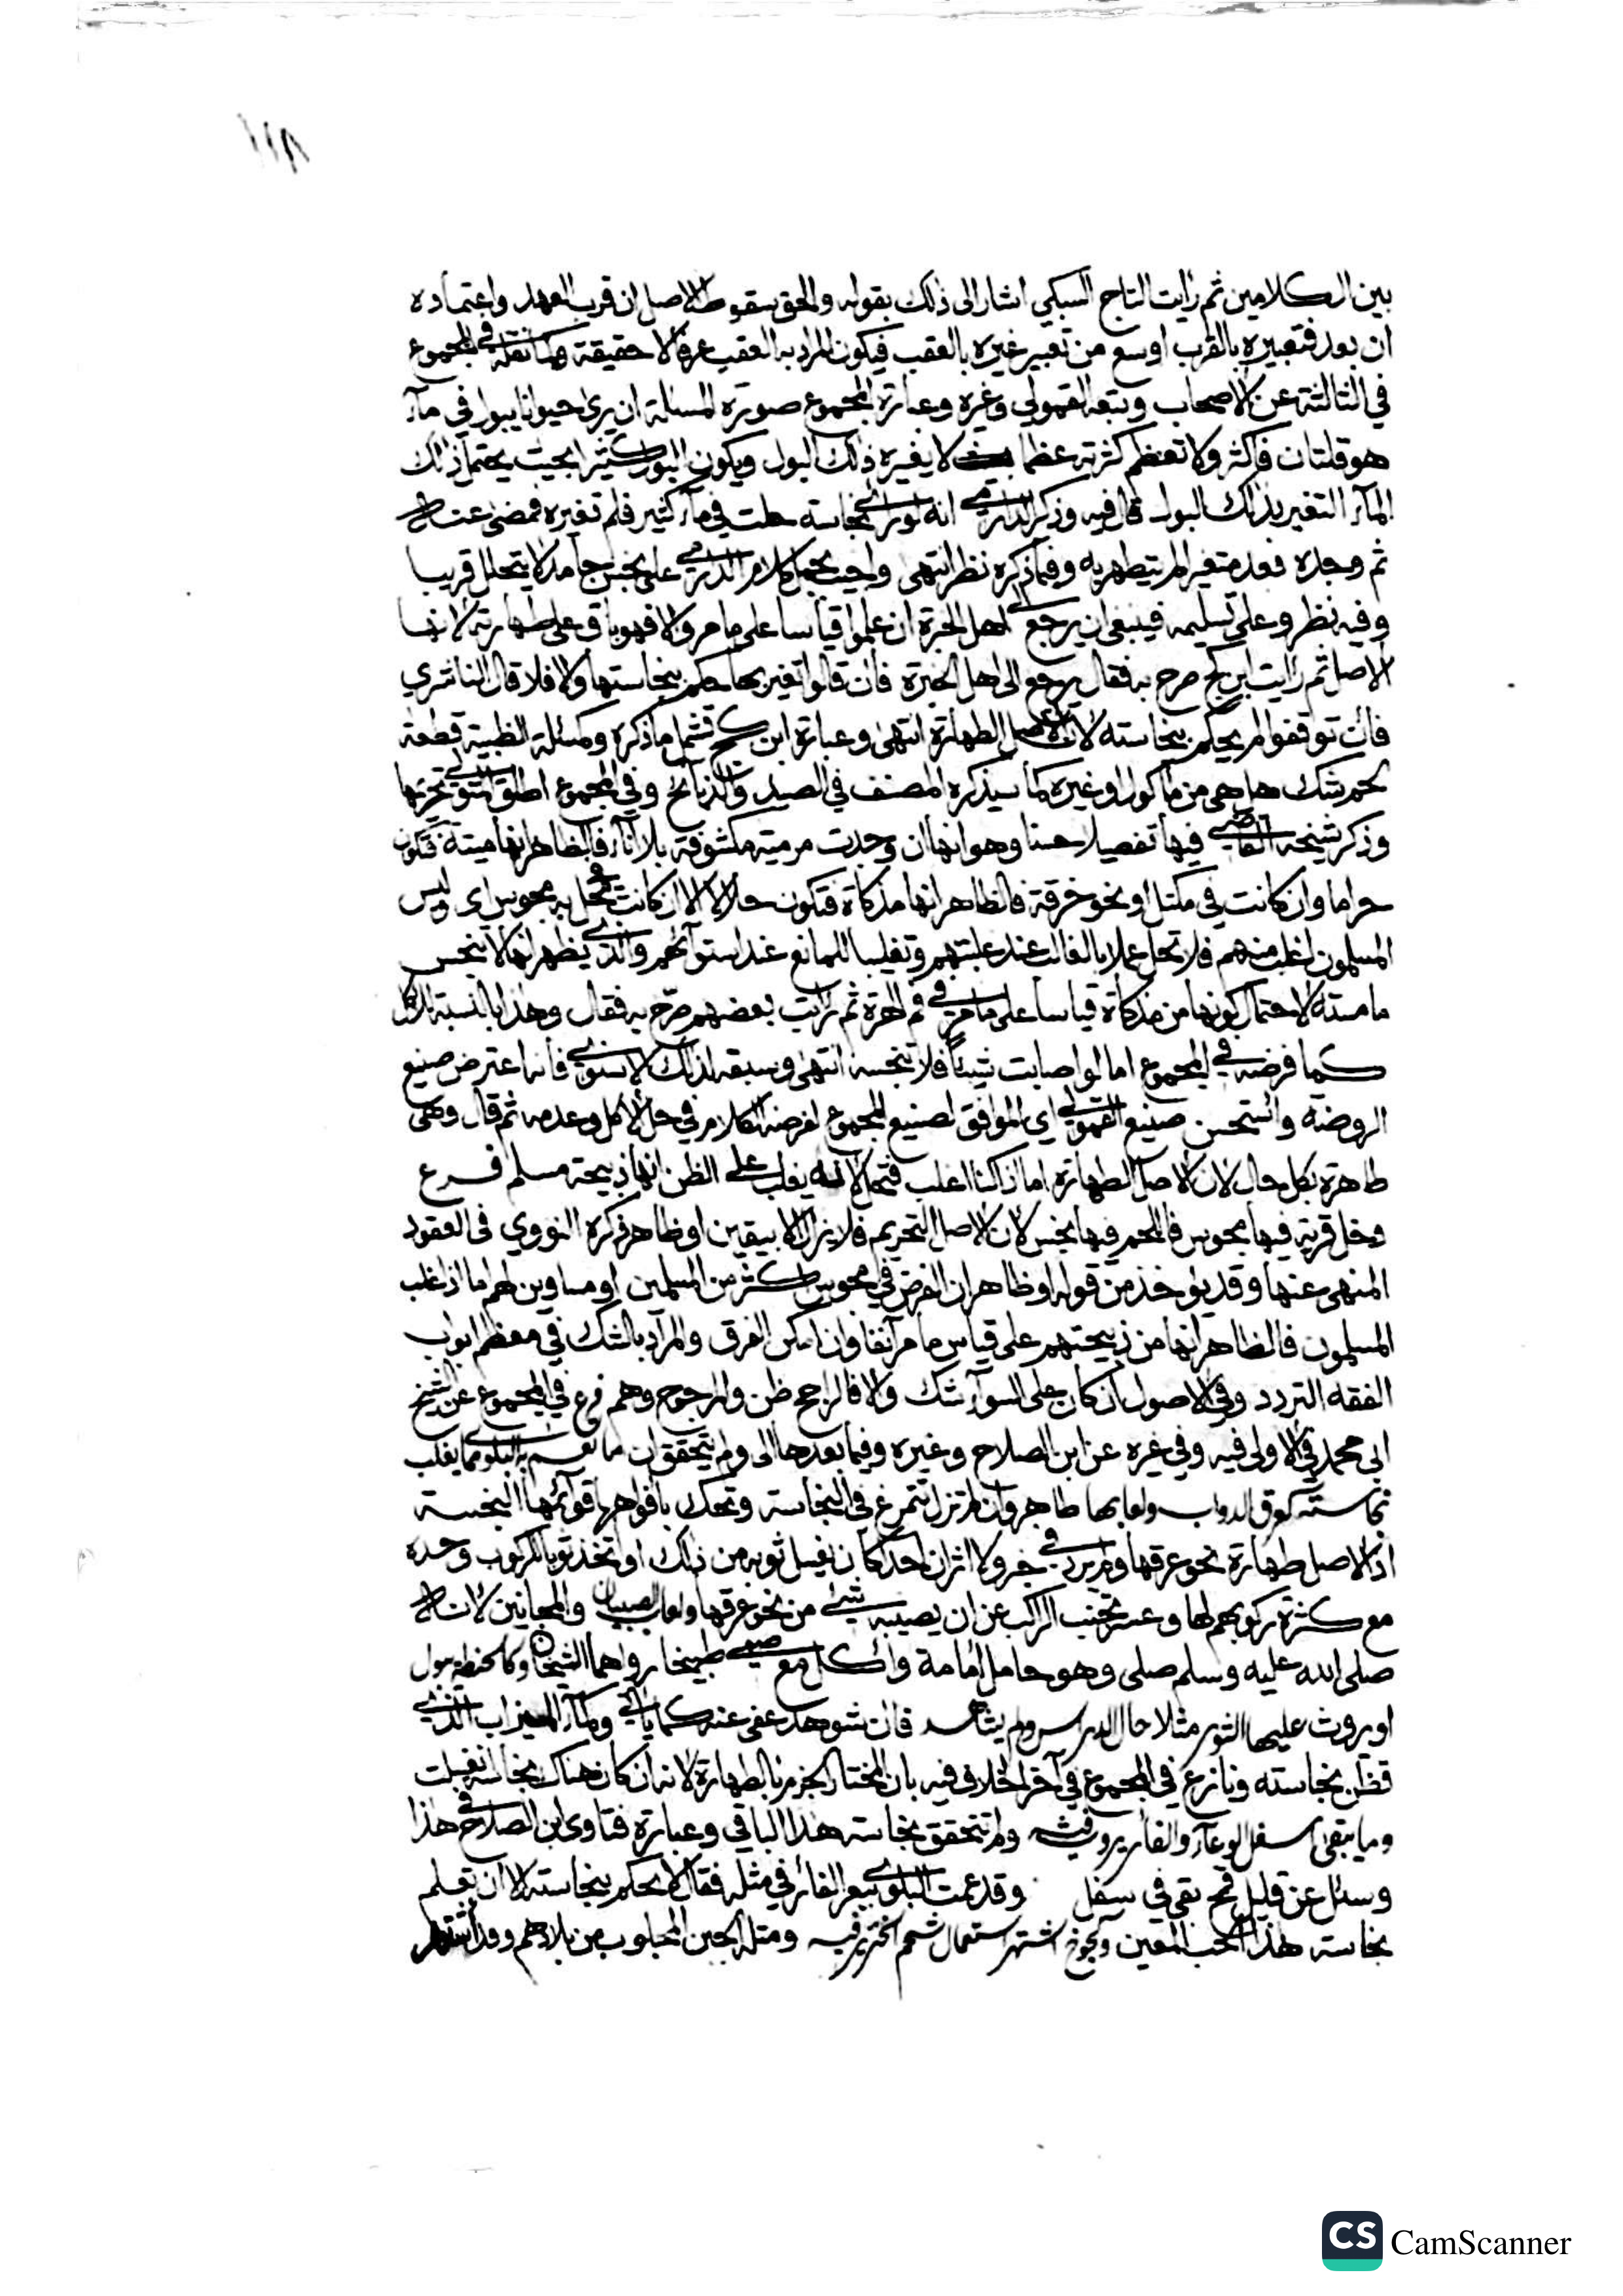 ١١٨
بين الكلامين ثم رايت التاج السبكي اشار الى ذلك بقوله والحق سقوط الاصل ان قرب العهد واعتماده
ان بعد فتعبيره بالقرب اوسع من تعبير غيره بالعقب فيكون المراد به العقب عرفا لا حقيقة كما نقله في المجموع
في الثالثة عن الاصحاب وتبعه القمولي وغيره وعبارة المجموع صورة المسئلة ان يرى حيوانا يبول في ماء
هو قلتان فاكثر ولا تعظم كثرته عظما لا يغيره ذلك البول ويكون البول كثيرا بحيث يحتمل ذلك
الماء التغير بذلك البول قال فيه وذكر الدارمي انه لو راى نجاسة حلت في ماء كثير فلم تغيره فمضى عنه
ثم وجده بعد متغيرا لم يتطهر به وفيما ذكره نظر انتهى واجيب بحمل كلام الدارمي على نجس جامد لا يتحلل قريبا
وفيه نظر وعلى تسليمه فينبغي ان يرجع الى اهل الخبرة ان علموا قياسا على ما مر والا فهو باق على طهارته لانها
الاصل ثم رايت ابن كج صرح به فقال يرجع الى اهل الخبرة فان قالوا تغير بها حكم بنجاستها والا فلا قال الناشري
فان توقفوا لم يحكم بنجاسته لان الاصل الطهارة انتهى وعبارة ابن كج تشمل ما ذكره وكمسئلة الظبية قطعة
لحم شك هل هي من ماكول او غيره كما سيذكره المصنف في الصيد والذبائح وفي المجموع اطلق المتولي تحريمها
وذكر شيخه القاضي فيها تفصيلا حسنا وهو انها ان وجدت مرمية مكشوفة بلا اناء فالظاهر انها ميتة فتكون
حراما وان كانت في مكتل او نحو خرقة فالظاهر انها مذكاة فتكون حلالا الا ان كانت بمحل به مجوس اي وليس
المسلمون اغلب منهم فلا تحل عملا بالغالب عند غلبتهم وتغليبا للمانع عند استوائهم والذي يظهر انها لا ينجس
ما مسته لاحتمال كونها من مذكاة قياسا على ما مر في فم الهرة ثم رايت بعضهم صرح به فقال وهذا بالنسبة للاكل
كما فرضه في المجموع اما لو اصابت شيئا فلا تنجسه انتهى وسبقه لذلك الاسنوي فانه اعترض صنيع
الروضة واستحسن صنيع القمولي اي الموافق لصنيع المجموع لفرضه الكلام في حل الاكل وعدمه ثم قال وهي
طاهرة بكل حال لان الاصل الطهارة اما اذا كنا اغلب فتحل لانه يغلب على الظن انها ذبيحة مسلم فرع
دخل قرية فيها مجوس فاللحم فيها نجس لان الاصل التحريم فلا يزال الا بيقين او ظاهر ذكره النووي في العقود
المنهي عنها وقد يؤخذ من قوله او ظاهر ان الفرض في مجوس اكثر من المسلمين او مساوين لهم اما اذا غلب
المسلمون فالظاهر انها من ذبيحتهم على قياس ما مر آنفا وان امكن الفرق والمراد بالشك في معظم ابواب
الفقه التردد وفي الاصول ان كان على السواء شك والا فالراجح ظن والمرجوح وهم فرع في المجموع عن الشيخ
ابي محمد في الاولى فيه وفي غيره عن ابن الصلاح وغيره وفيما بعدها الى ولم يتحقق ان ما تعم به البلوى مما يغلب
نجاسته كعرق الدواب ولعابها طاهر وان لم تزل تتمرغ في النجاسة وتحك بافواهها قوائمها النجسة
اذ الاصل طهارة نحو عرقها ولم يرد في خبر ولا اثر ان احدا كان يغسل ثوبه من ذلك او اتخذ ثوبا للركوب وحده
مع كثرة ركوبهم لها وعسر تجنب الراكب عن ان يصيبه شيء من نحو عرقها ولعاب الصبيان والمجانين لانه
صلى الله عليه وسلم صلى وهو حامل امامة واكل مع صبي طبيخا رواهما الشيخان وكالحنطة يبول
او يروث عليها الثور مثلا حال الدراس ولم يشاهد فان شوهد عفي عنه كما ياتي وماء الميزاب الذي
تظن نجاسته ونازع في المجموع في آخر الخلاف فيه بان المختار الجزم بالطهارة لانه ان كان هناك نجاسة انغسلت
وما يبقى اسفل الوعاء والفار يروث فيه ولم تتحقق نجاسة هذا الباقي وعبارة فتاوى ابن الصلاح في هذا
وسئل عن قليل قمح بقي في سفل وقد عمت البلوى ببعر الفار في مثله فقال لا يحكم بنجاسته الا ان تعلم
نجاسة هذا الحب المعين وكجوخ اشتهر استعمال شحم الخنزير فيه ومثله الجبن المجلوب من بلادهم وقد اشتهر
CS CamScanner